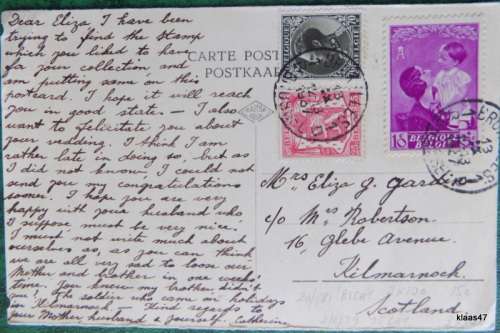 Dear Eliza, I have been
trying to find the stamp
which you liked to have
for your collection and
am putting same on this
postcard. I hope it will reach
you in good state - I also
want to felicitate you about
your wedding. I think I am
rather late in doing so, but as
I did not know, I could not
send you my congratulations
sooner. I hope you are very
happy with your husband who
I suppose must be very nice.
I must not write much about
ourselves as, as you can think
we are all very sad to loose our
Mother and brother in one week'
time. You knew my brother didn't
you? The soldier who came on holidays
in Kilmarnock - Kind regards to
your Mother husband & yourself. Catherine
CARTE POST
POSTKAAR
BELGIQUE
BELGIE
Mrs Eliza G.
c/o Mrs Robertson
16, Glebe Avenue
Kilmarnock.
Scotland
klaas47